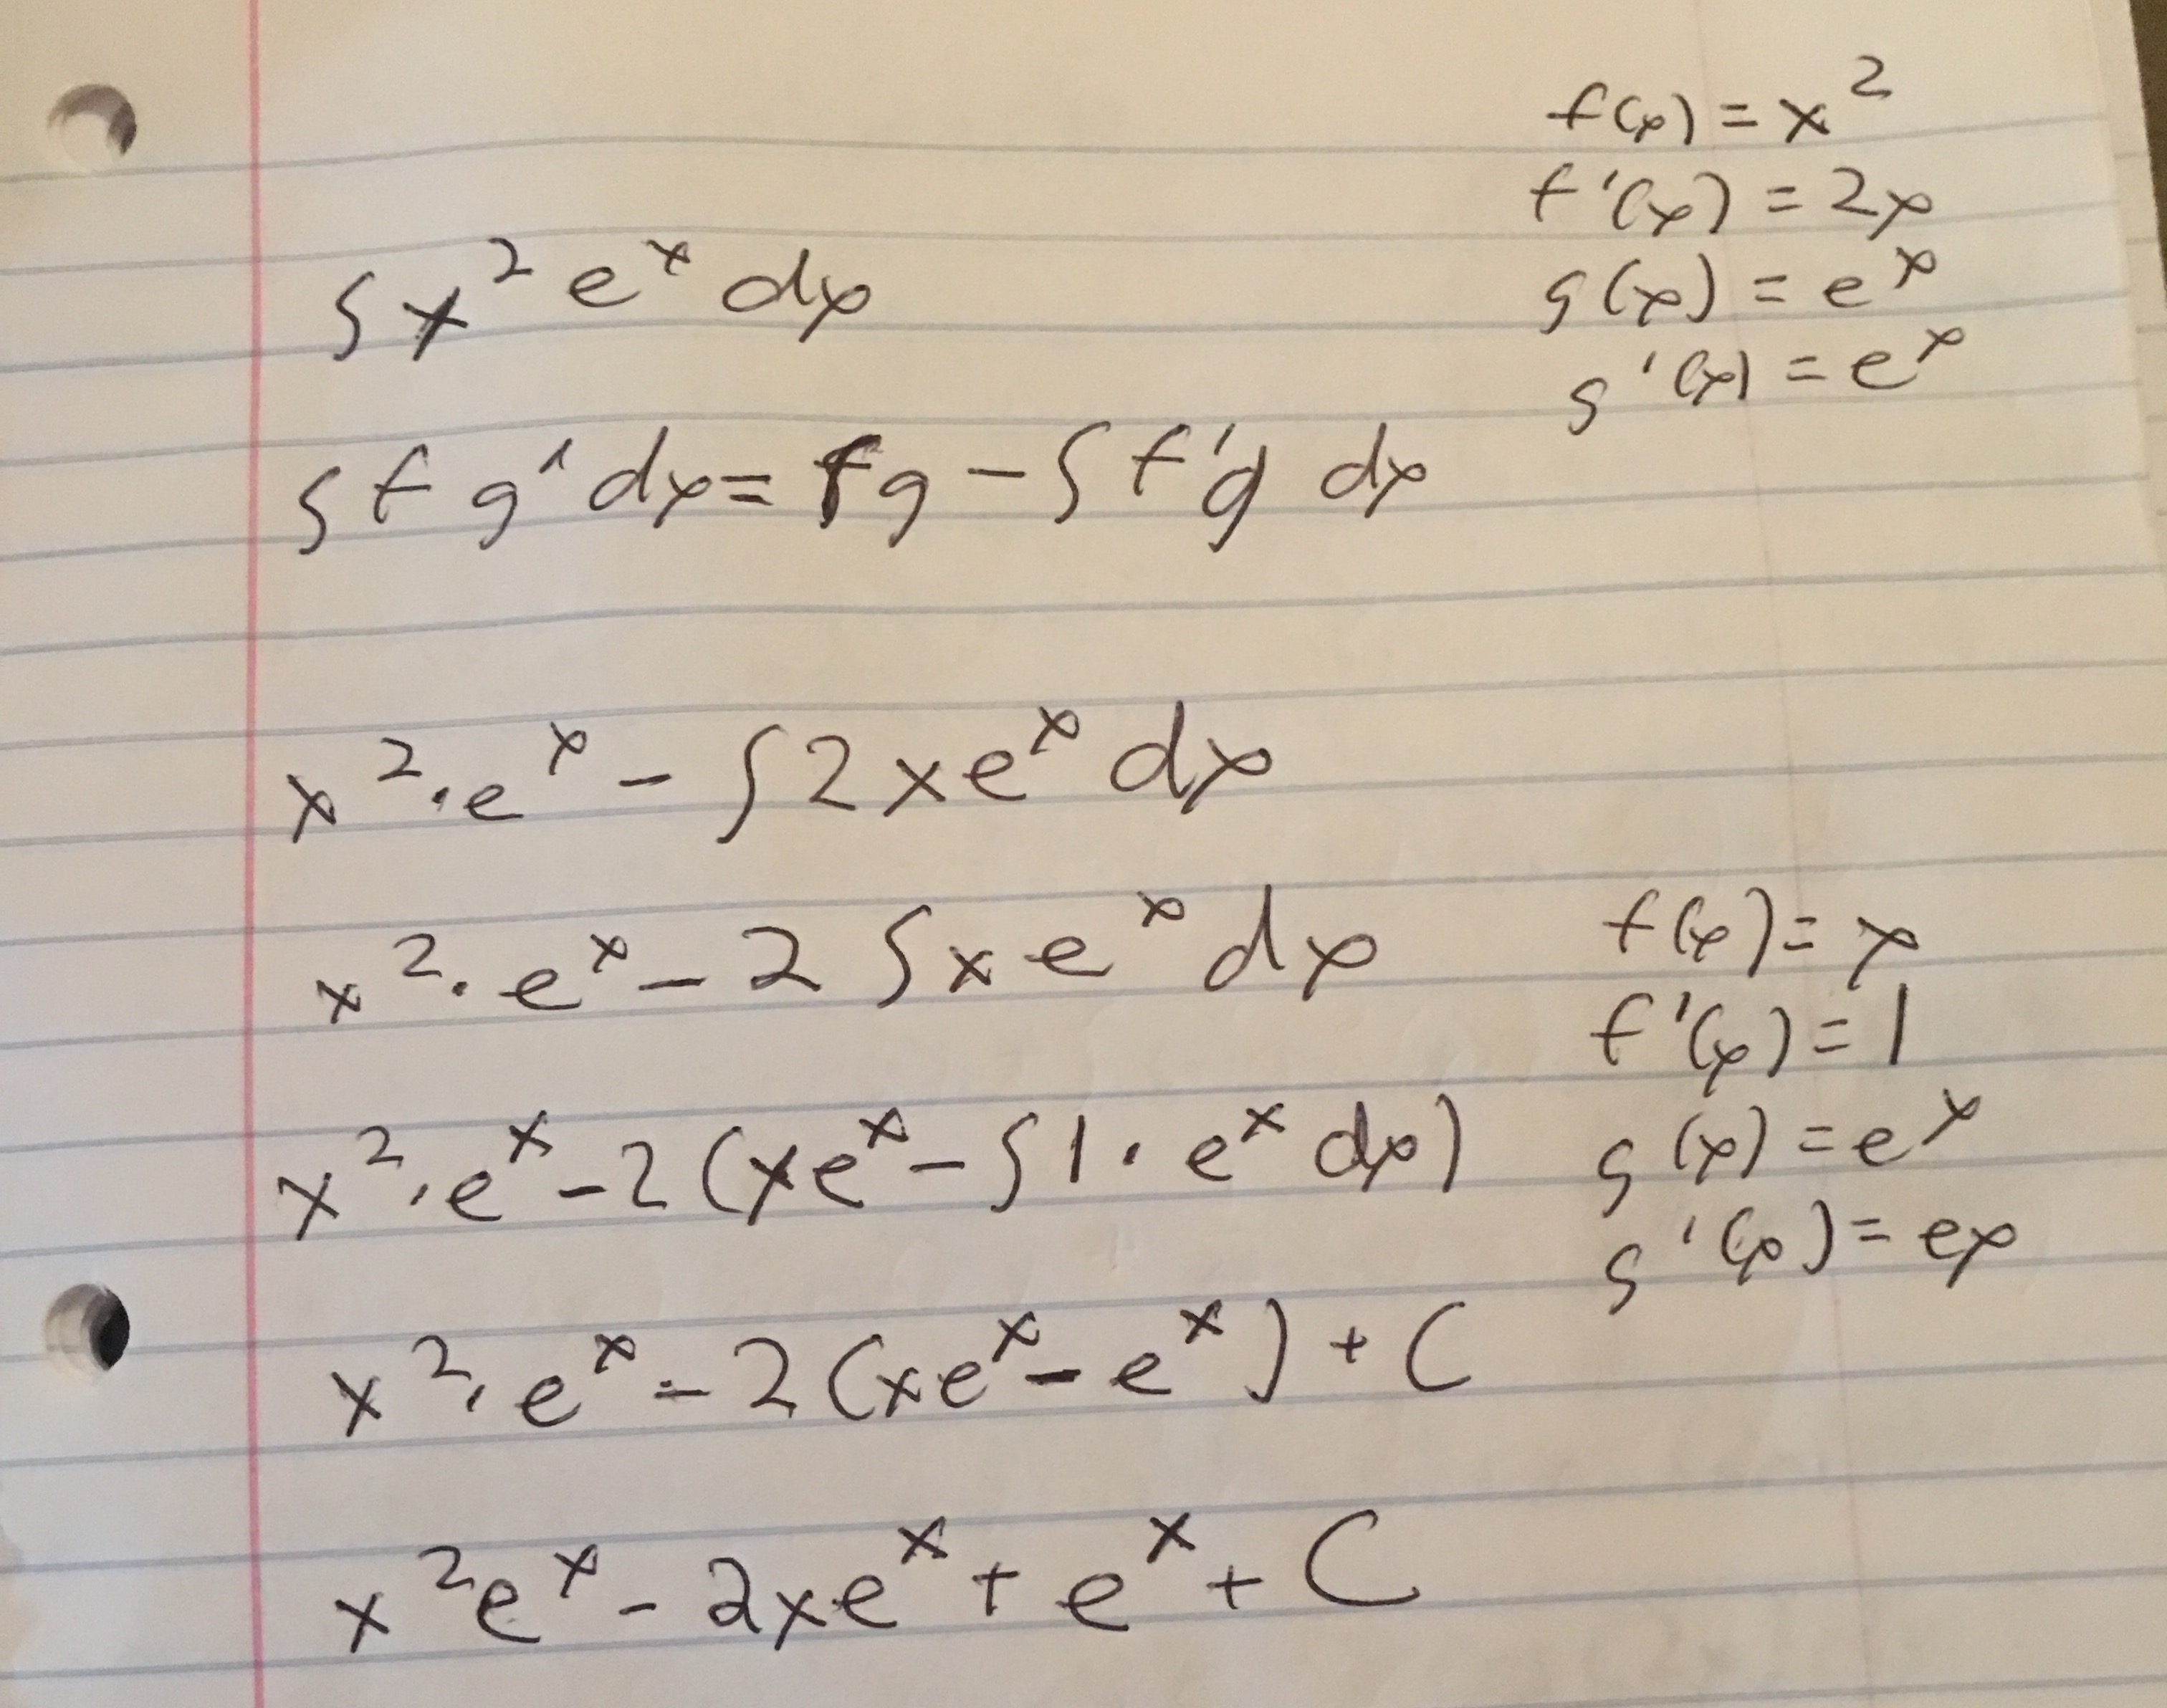 f(x) = x²
f'(x) = 2x
g(x) = eˣ
g'(x) = eˣ
∫x²eˣdx
∫fg'dx = fg - ∫f'g dx
x²·eˣ - ∫2xeˣdx
x²·eˣ - 2∫xeˣdx
f(x) = x
f'(x) = 1
g(x) = eˣ
g'(x) = ex
x²·eˣ - 2(xeˣ - ∫1·eˣdx)
x²·eˣ - 2(xeˣ - eˣ) + C
x²eˣ - 2xeˣ + eˣ + C